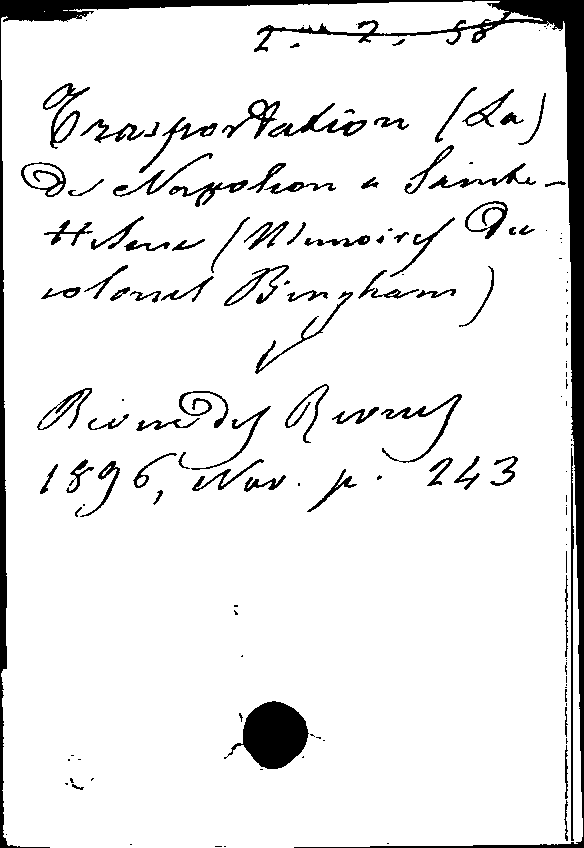 2. 2. 58
Trasportation (La)
De Napoleon a Sainte-
Helene (Memoires Du
colonel Bingham)
Revue des Revues
1896, Nov. p. 243